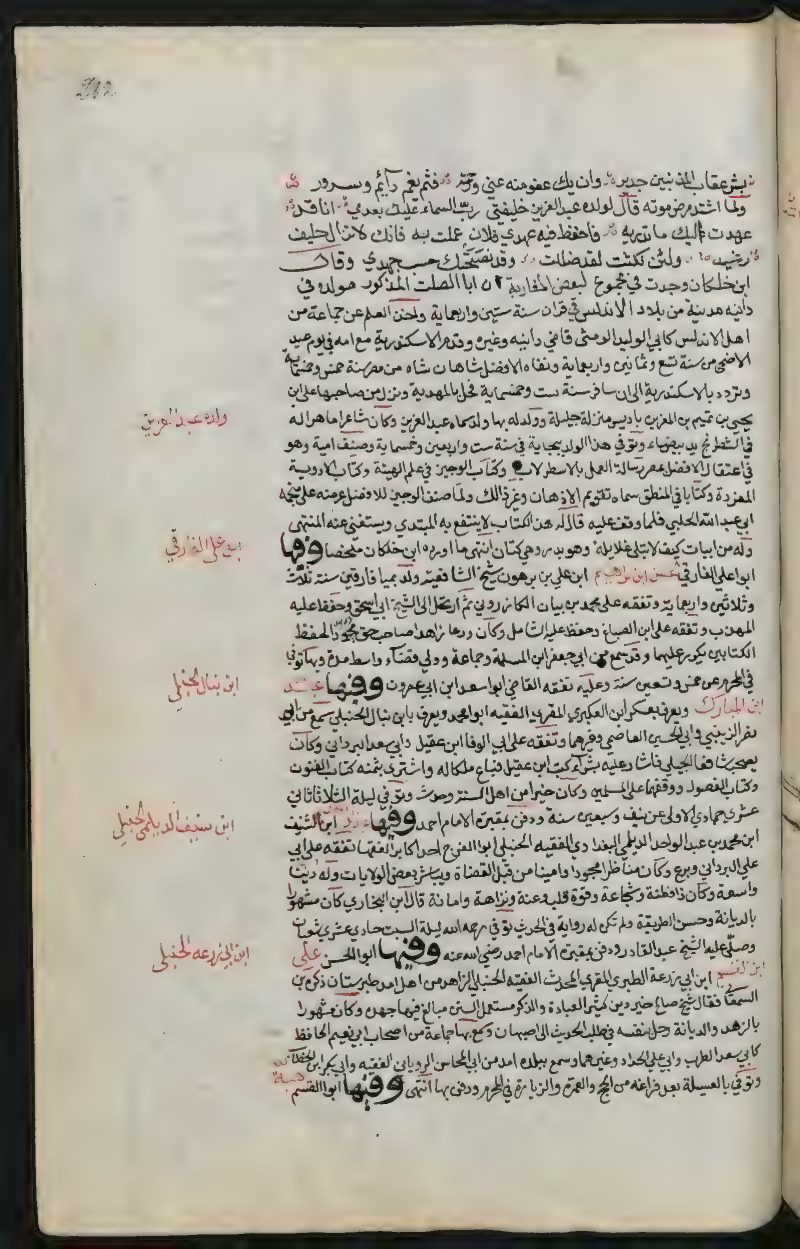 بشر عقاب المذنبين جدير وان يك عفو منه عني ورحمة فثم نعيم دايم وسرور
ولما اشتد مرض موته قال لولده عبد العزيز خليفتي رب السماء عليك بعدي انا قد
عهدت اليك ما تدريه فاحفظ فيه عهدي فلان عملت به فانك لا تزال حليف
رشيد ولئن نكثت لقد ضللت وقد نصحتك حسب جهدي وقال
ابن خلكان وجدت في مجموع لبعض المغاربة ان ابا الصلت المذكور مولده في
دانيه مدينة من بلاد الاندلس في قران سنة ستين واربعماية واخذ العلم عن جماعة من
اهل الاندلس كابي الوليد الوقشي قاضي دانيه وغيره وقدم الاسكندرية مع امه في يوم عيد
الاضحى من سنة تسع وثمانين واربعماية ونفاه الافضل شاهان شاه من مصر سنة خمس وخمسماية
وتردد بالاسكندرية الى ان سافر سنة ست وخمسماية فحل بالمهدية ونزل من صاحبها علي ابن
يحيى بن تميم بن المعز بن باديس منزلة جليلة وولد له بها ولد سماه عبد العزيز وكان شاعرا ماهرا له
في الشطرنج يد بيضاء وتوفي هذا الولد ببجاية في سنة ست واربعين وخمسماية وصنف امية وهو
في اعتقال الافضل بمصر رسالة العمل بالاسطرلاب وكتاب الوجيز في علم الهيئة وكتاب الادوية
المفردة وكتابا في المنطق سماه تقويم الاذهان وغير ذلك ولما صنف الوجيز للافضل عرضه على منجمه
ابي عبد الله الحلبي فلما وقف عليه قال له هذا الكتاب لا ينتفع به المبتدي ويستغني عنه المنتهي
وله من ابيات كيف لا تبلى غلايله وهو بدر وهي كتان انتهى ما اورده ابن خلكان ملخصا وفيها
ابو علي الفارقي حسن ابن ابراهيم ابن علي بن برهون شيخ الشافعية ولد بميا فارقين سنة ثلاث
وثلاثين واربعماية وتفقه على محمد بن بيان الكازروني ثم ارتحل الى الشيخ ابي اسحق وحفظ عليه
المهذب وتفقه على ابن الصباغ وحفظ عليه الشامل وكان ورعا زاهدا صاحب حق مجود الحفظ
الكتابين يكرر عليهما وقد سمع من ابي جعفر ابن المسلمة وجماعة وولي قضاء واسط مدة وبها توفي
في المحرم عن خمس وتسعين سنة وعليه تفقه القاضي ابو سعد ابن ابي عصرون وفيها
ابن المبارك ويعرف بعسكر ابن العكبري المقري الفقيه ابو محمد ويعرف بابن نبال الحنبلي سمع من ابي
نصر الزينبي وابي الحسين العاصمي وغيرهما وتفقه على ابي الوفا ابن عقيل وابي سعد البرداني وكان
يصحب شافعا الجيلي فاشار عليه بشراء كتب ابن عقيل فباع ملكا له واشترى بثمنه كتاب الفنون
وكتاب الفصول ووقفها على المسلمين وكان خيرا من اهل السنة وحدث وتوفي ليلة الثلاثا ثاني
عشري جمادي الاولى عن نيف وسبعين سنة ودفن بمقبرة الامام احمد وفيها ابن الشنيف
ابن محمد بن عبد الواحد الديلمي البغدادي الفقيه الحنبلي ابو الفرج احد اكابر الفقها تفقه على ابي
علي البرداني وبرع وكان مناظرا مجودا وامينا من قبل القضاة ويباشر بعض الولايات وله دنيا
واسعة وكان ذا فطنة وشجاعة وقوة قلب وعفة ونزاهة وامانة قال ابن النجاري كان مشهورا
بالديانة وحسن الطريقة ولم تكن له رواية في الحديث توفي رحمه الله ليلة السبت حادي عشري شعبان
وصلى عليه الشيخ عبد القادر ودفن بمقبرة الامام احمد رضي الله عنه وفيها ابو الحسن علي
ابن ابي زرعة الطبري المقري المحدث الفقيه الحنبلي الزاهد من اهل امد طبرستان ذكره بن
السمعا فقال شيخ صالح خير دين كثير العبادة والذكر مستعمل السنن مبالغ فيها جهده وكان مشهورا
بالزهد والديانة رحل بنفسه في طلب الحديث الى اصبهان وسمع بها جماعة من اصحاب ابي نعيم الحافظ
كابي سعد المطرز وابي علي الحداد وغيرهما وسمع ببلده امد من ابي المحاسن الروياني الفقيه وابي بكر ابن الخطاب
وتوفي بالعسيلة بعد فراغه من الحج والعمرة والزيارة في المحرم ودفن بها انتهى وفيها هبة ابو القسم
ولده عبد العزيز
ابو علي الفارقي
ابن نبال الحنبلي
ابن شنيف الديلمي الحنبلي
ابن ابي زرعه الحنبلي